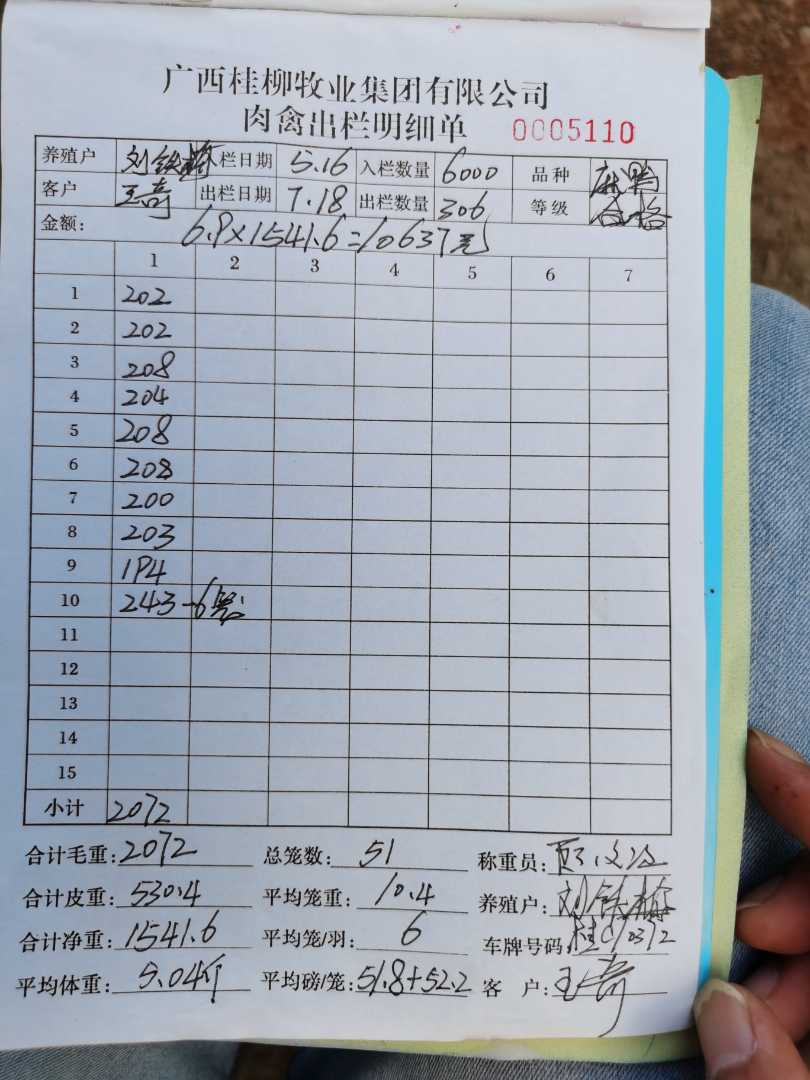 广西桂柳牧业集团有限公司
肉禽出栏明细单 0005110
养殖户 刘铁梅 栏日期 5.16 入栏数量 6000 品种 麻鸭
客户 王奇 出栏日期 7.18 出栏数量 306 等级 合格
金额: 6.9×1541.6=10637元
1 2 3 4 5 6 7
1 202
2 202
3 208
4 204
5 208
6 208
7 200
8 203
9 194
10 243-6笼
11
12
13
14
15
小计 2072
合计毛重: 2072 总笼数: 51 称重员:
合计皮重: 530.4 平均笼重: 10.4 养殖户: 刘铁梅
合计净重: 1541.6 平均笼/羽: 6 车牌号码: 桂
平均体重: 5.04斤 平均磅/笼: 51.8+52.2 客 户: 王奇